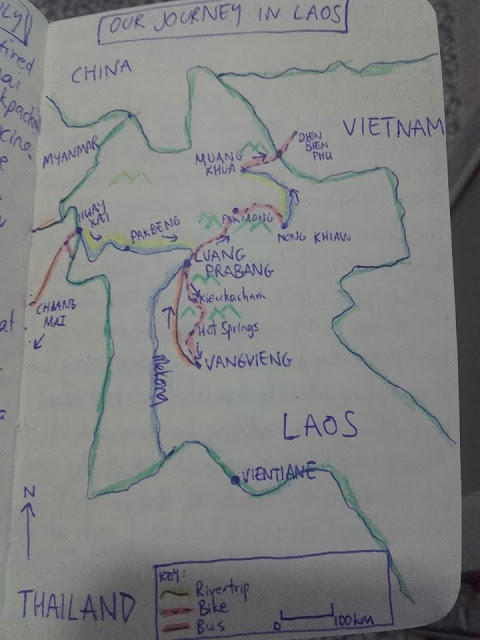 OUR JOURNEY IN LAOS
CHINA
VIETNAM
MYANMAR
DIEN
BIEN
PHU
MUANG
KHUA
HUAY
XAI
PAKBENG
PAKMONG
NONG KHIAW
LUANG
PRABANG
CHIANG
MAI
Kieukacham
Hot Springs
VANGVIENG
Mekong
LAOS
VIENTIANE
N
THAILAND
KEY:
Rivertrip
Bike
Bus
0 100km